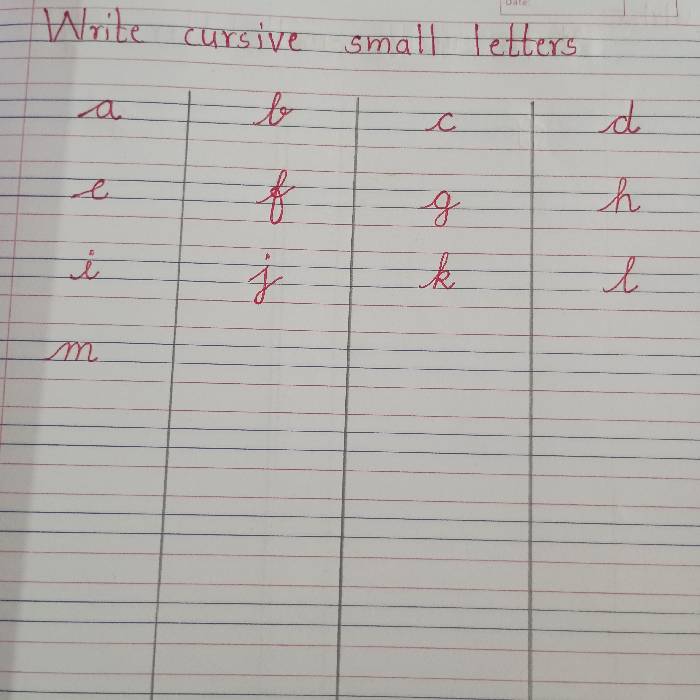 Date
Write cursive small letters
a b c d
e f g h
i j k l
m